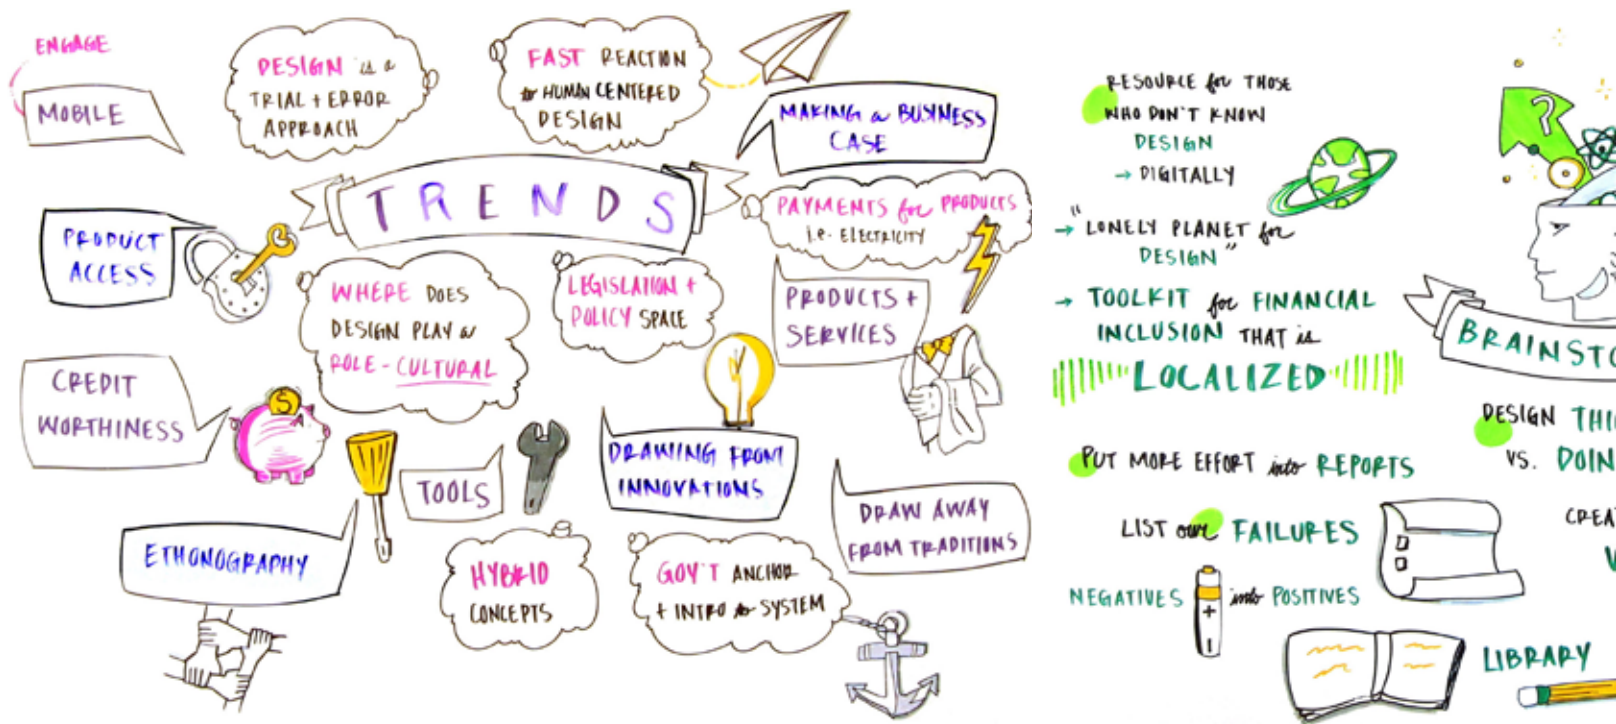 ENGAGE
MOBILE
DESIGN is a
TRIAL + ERROR
APPROACH
FAST REACTION
to HUMAN CENTERED
DESIGN
MAKING a BUSINESS
CASE
TRENDS
PRODUCT
ACCESS
PAYMENTS for PRODUCTS
i.e. ELECTRICITY
WHERE DOES
DESIGN PLAY a
ROLE - CULTURAL
LEGISLATION +
POLICY SPACE
PRODUCTS +
SERVICES
CREDIT
WORTHINESS
$
TOOLS
DRAWING FROM
INNOVATIONS
DRAW AWAY
FROM TRADITIONS
ETHONOGRAPHY
HYBRID
CONCEPTS
GOV'T ANCHOR
+ INTRO to SYSTEM
RESOURCE for THOSE
WHO DON'T KNOW
DESIGN
→ DIGITALLY
→ "LONELY PLANET for
DESIGN"
→ TOOLKIT for FINANCIAL
INCLUSION THAT is
LOCALIZED
PUT MORE EFFORT into REPORTS
LIST our FAILURES
NEGATIVES + - into POSITIVES
?
BRAINSTO
DESIGN THI
VS. DOIN
CREA
LIBRARY